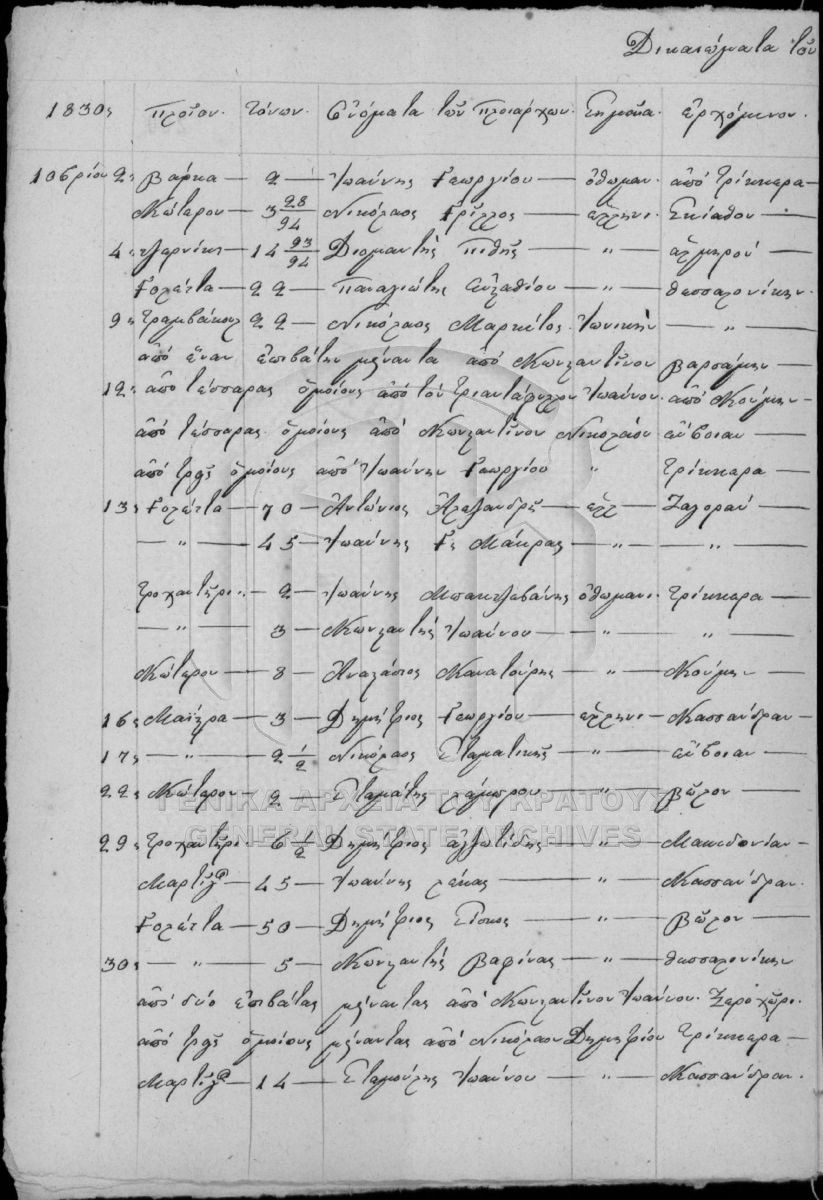 Δικαιώματα τοῦ
1830, Πλοῖον. τόνων. Ὀνόματα τῶν Πλοιάρχων. Σημαία. ἐρχόμενον.
10βρίου 2, Βάρκα — 2 — Ἰωάννης Γεωργίου — ὀθωμαν. ἀπὸ Τρίκκερα —
Κότερον — 3 28/94 — Νικόλαος — ἑλληνι. Σκίαθον —
4, — 14 93/94 Διαμαντὴς — " — ἁλμυροῦ —
Γολέττα — 22 — Παναγιώτης Εὐσταθίου — " — θεσσαλονίκην.
9, Τραμβάκουλ 22 — Νικόλαος Μαρκέτος. Ἰωνικὴν — " —
ἀπὸ ἕναν ἐπιβάτην μείναντα ἀπὸ Κωνσταντῖνον Βαρσάμην —
12, ἀπὸ τέσσαρας ὁμοίους ἀπὸ τὸν Τριαντάφυλλον Ἰωάννου. ἀπὸ Κούμην —
ἀπὸ τέσσαρας ὁμοίους ἀπὸ Κωνσταντῖνον Νικολάου εὔβοιαν —
ἀπὸ τρεῖς ὁμοίους ἀπὸ Ἰωάννην Γεωργίου " Τρίκκερα —
13, Γολέττα — 70 — Ἀντώνιος Ἀλεξανδρῆς — ἑλλ — Ζαγορὰν —
— " — 45 — Ἰωάννης Γ. Μάκρας — " — " —
Τροχαντῆρι. — 2 — Ἰωάννης ὀθωμανι. Τρίκκερα —
— " — 3 — Κωνσταντὴς Ἰωάννου — " — " —
Κότερον — 8 — Ἀναστάσιος — " — Κούμην —
16, Μαΐστρα — 3 — Δημήτριος Γεωργίου — ἑλληνι — Κασσάνδραν —
17, — " — 2 1/2 Νικόλαος Σταματίκης — " — εὔβοιαν —
22, Κότερον — 2 — Σταμάτης Λάμπρου — " — Βῶλον —
29, Τροχαντῆρι. 6 1/2 Δημήτριος — " — Μακεδονίαν —
Μαρτίγο — 45 — Ἰωάννης Λέκας — " — Κασσάνδραν.
Γολέττα — 50 — Δημήτριος — " — Βῶλον —
30, — " — 5 — Κωνσταντὴς Βαφίνας — " — θεσσαλονίκην
ἀπὸ δύο ἐπιβάτας μείναντας ἀπὸ Κωνσταντῖνον Ἰωάννου. Ξεροχῶρι.
ἀπὸ τρεῖς ὁμοίους μείναντας ἀπὸ Νικόλαον Δημητρίου Τρίκκερα —
Μαρτίγο — 14 — Σταμούλης Ἰωάννου — " — Κασσάνδραν.
ΓΕΝΙΚΑ ΑΡΧΕΙΑ ΤΟΥ ΚΡΑΤΟΥΣ
GENERAL STATE ARCHIVES